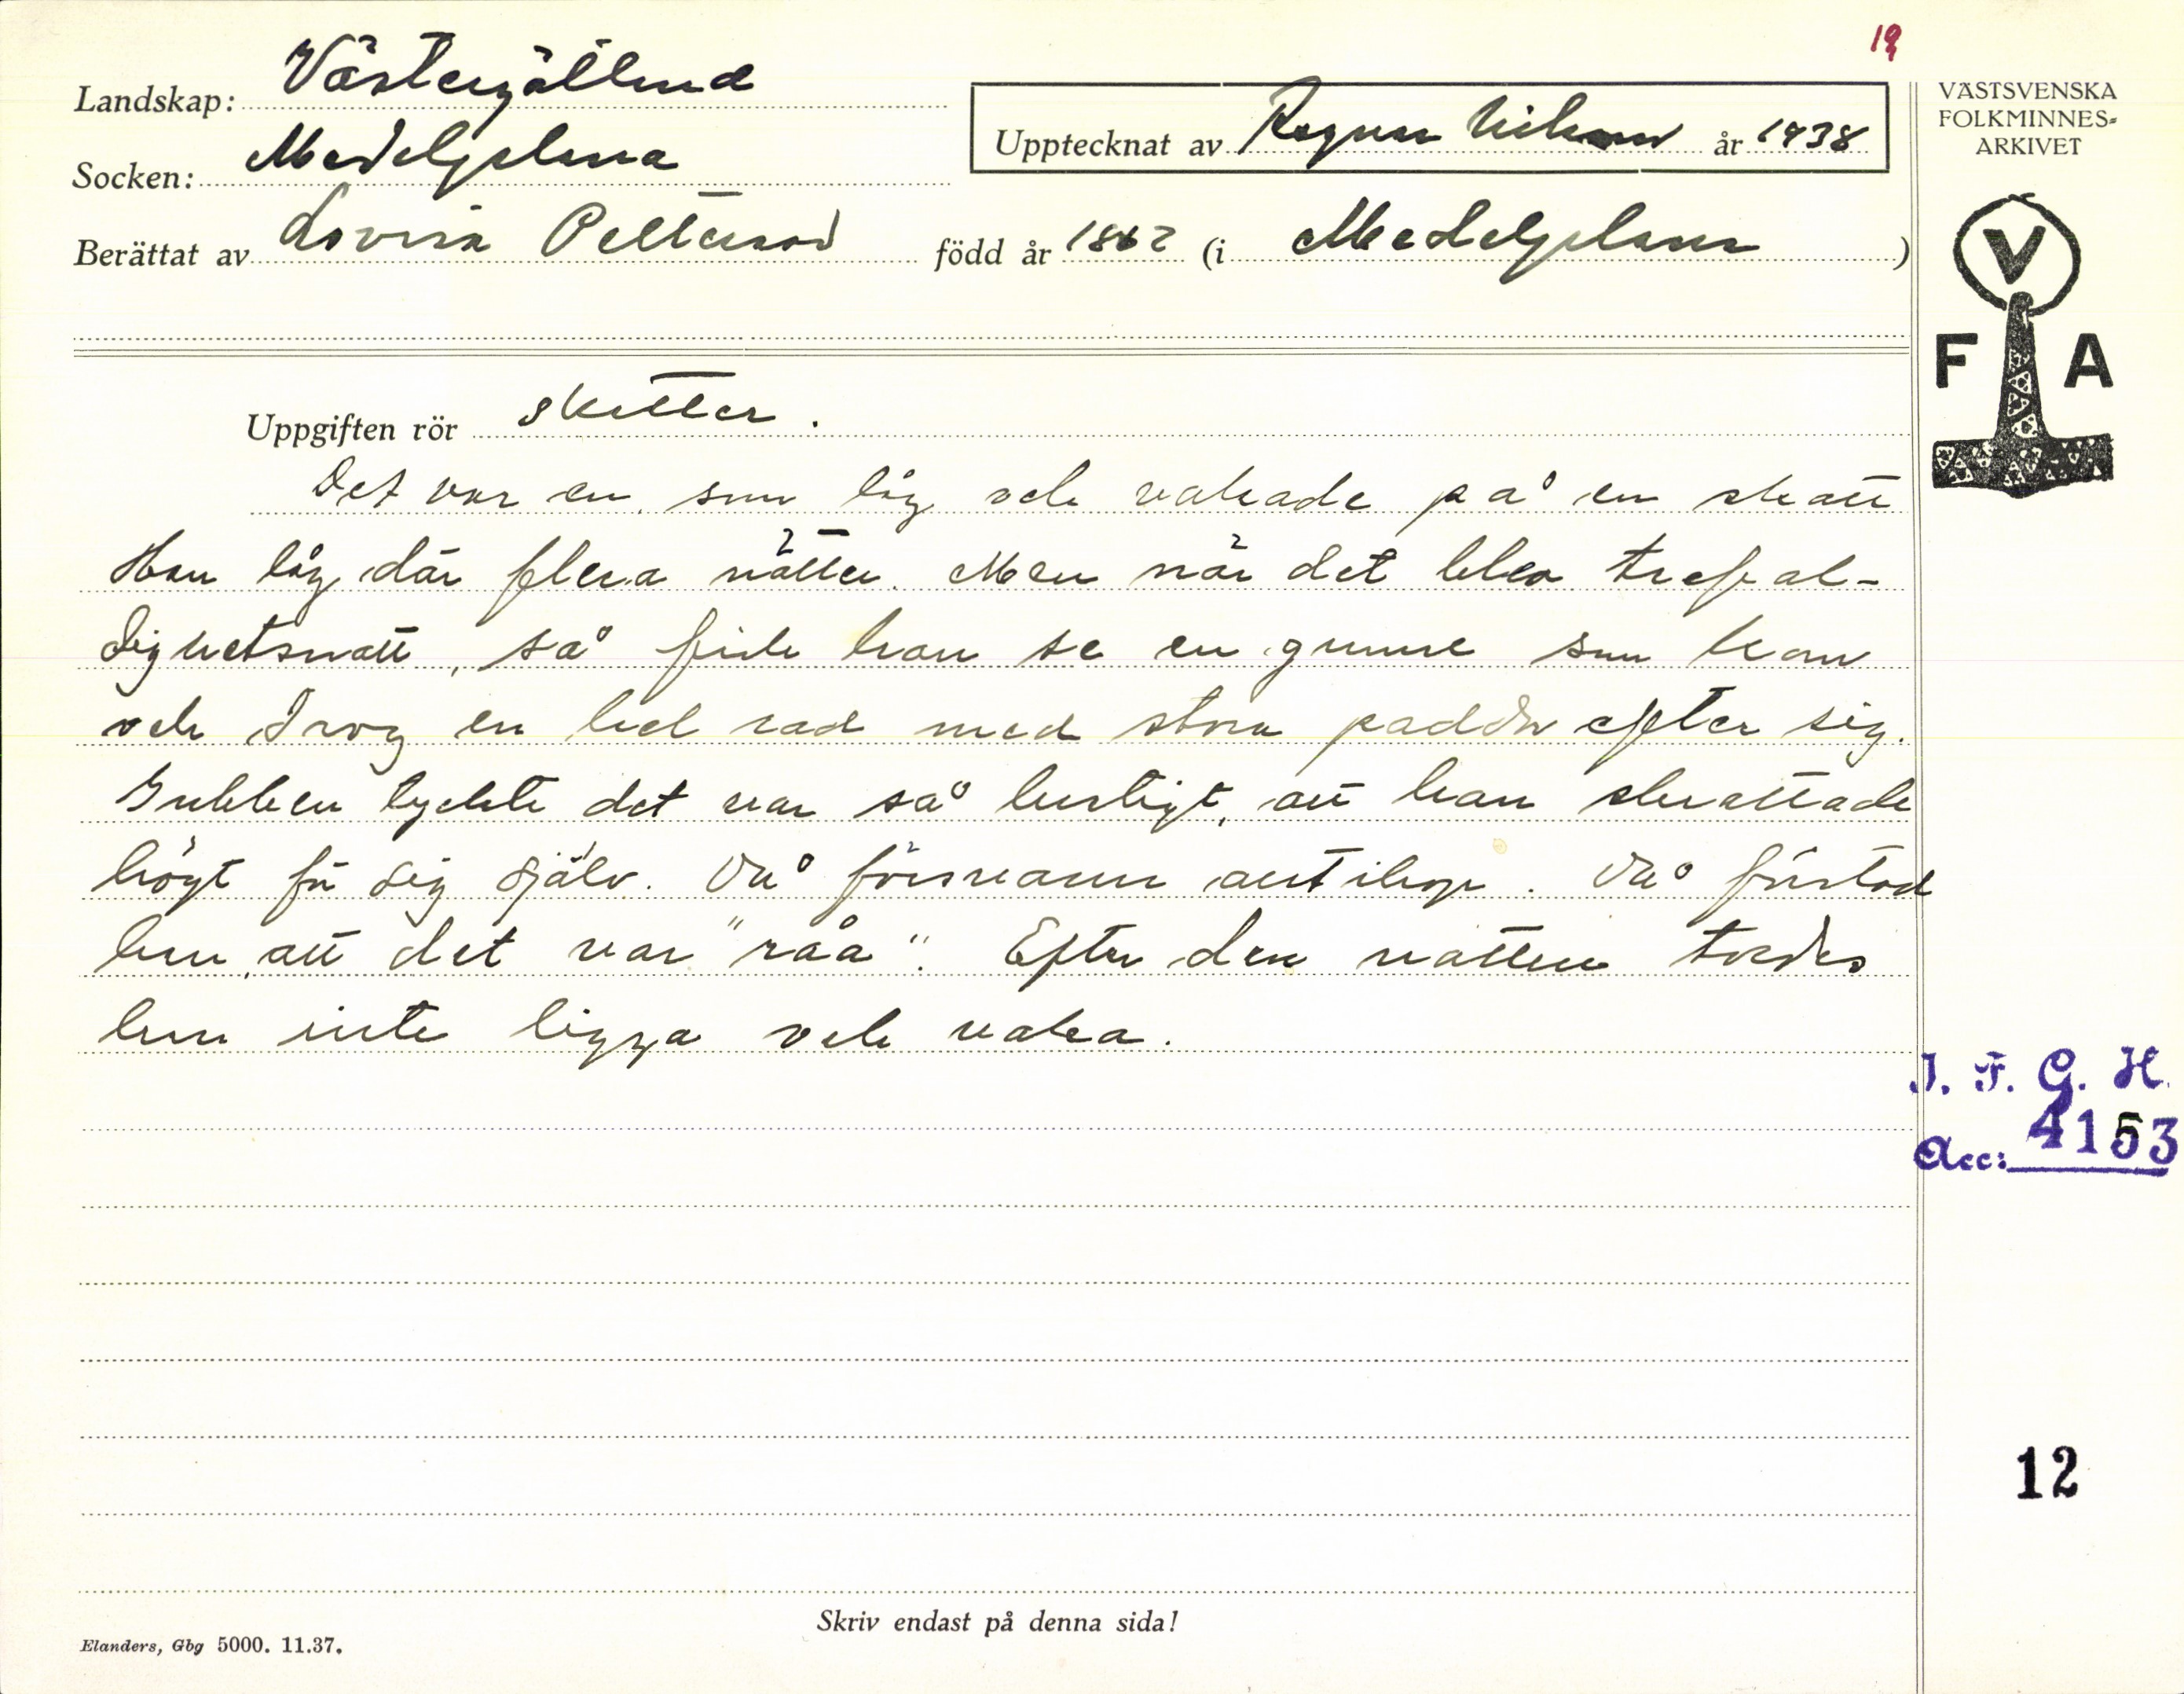 19
Landskap: Västergötland
Socken: Medelplana
Upptecknat av Ragnar Nilsson år 1938
Berättat av Lovisa Petterson född år 1862 (i Medelplana)
VÄSTSVENSKA
FOLKMINNES-
ARKIVET
V
F A
Uppgiften rör skatter.
Det var en, som låg och vakade på en skatt
Han låg där flera nätter. Men när det blev trefal-
dighetsnatt, så fick han se en gumme som kom
och drog en hel rad med stora paddor efter sig.
Gubben tyckte det var så lustigt, att han skrattade
högt för sig själv. Då försvann alltihop. Då förstod
han, att det var "råa". Efter den natten tordes
han inte ligga och vaka.
I. F. G. H.
Acc: 4153
12
Skriv endast på denna sida!
Elanders, Gbg 5000. 11.37.